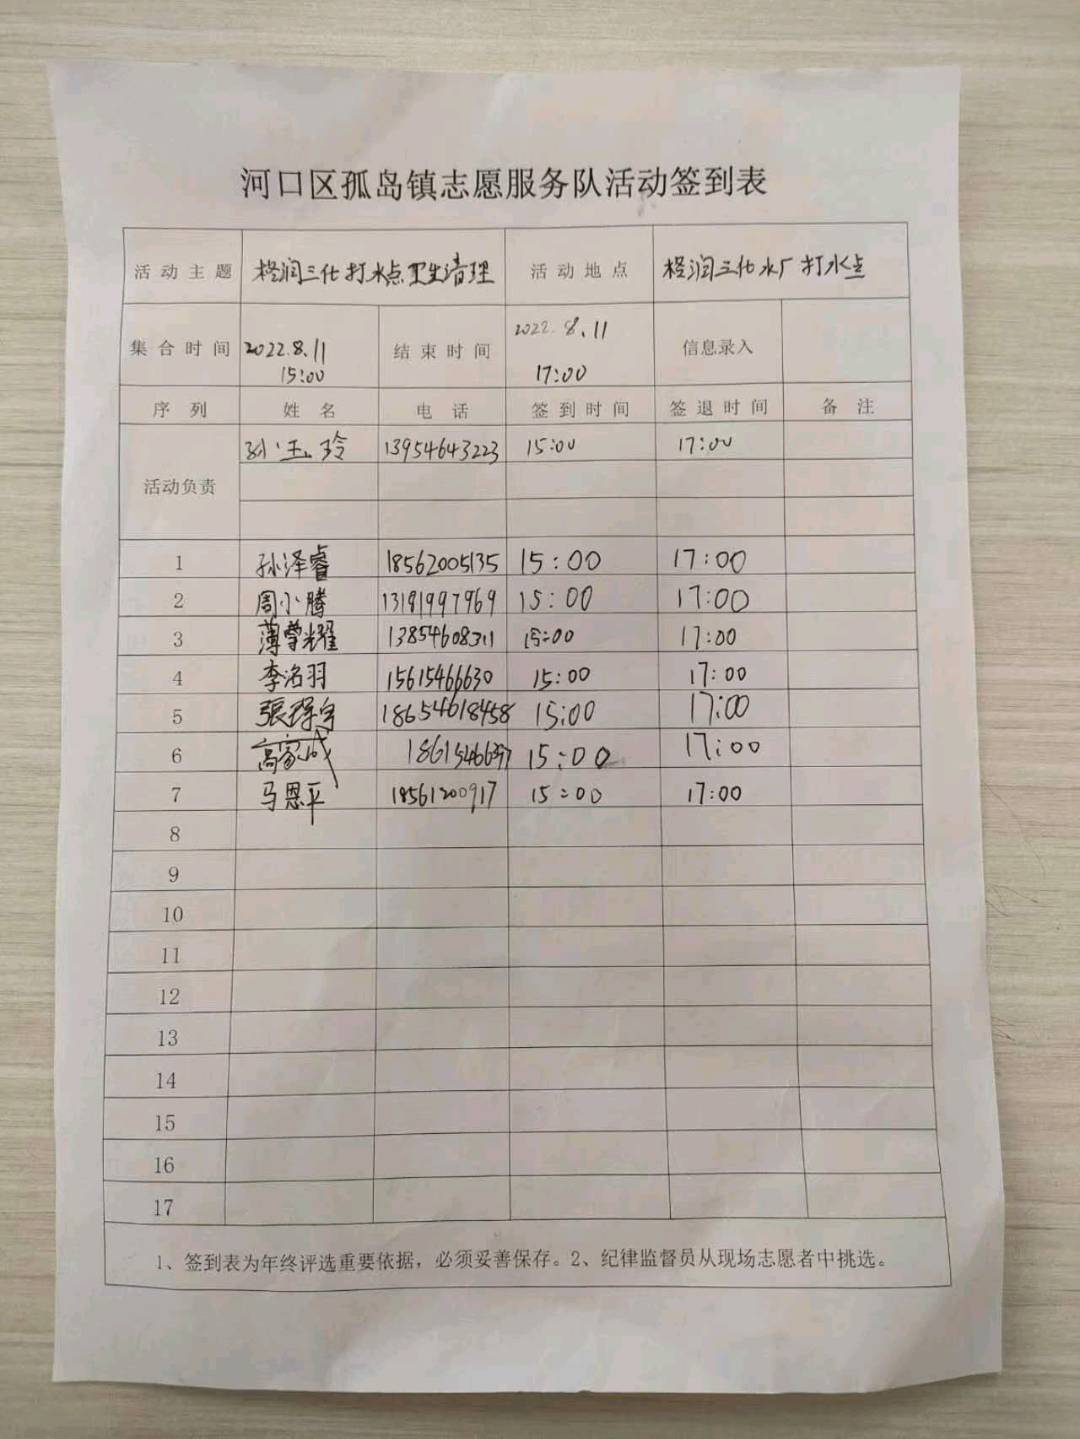 河口区孤岛镇志愿服务队活动签到表
活动主题 格润三化打水点卫生清理 活动地点 格润三化水厂打水点
集合时间 2022.8.11 15:00 结束时间 2022.8.11 17:00 信息录入
序列 姓名 电话 签到时间 签退时间 备注
活动负责 孙玉玲 13954643223 15:00 17:00
1 孙泽睿 18562005135 15:00 17:00
2 周小腾 13181997969 15:00 17:00
3 薄尊耀 13854608311 15:00 17:00
4 李洺羽 15615466630 15:00 17:00
5 張宇 18654618458 15:00 17:00
6 高家成 15:00 17:00
7 马恩平 18561200917 15:00 17:00
8
9
10
11
12
13
14
15
16
17
1、签到表为年终评选重要依据，必须妥善保存。2、纪律监督员从现场志愿者中挑选。